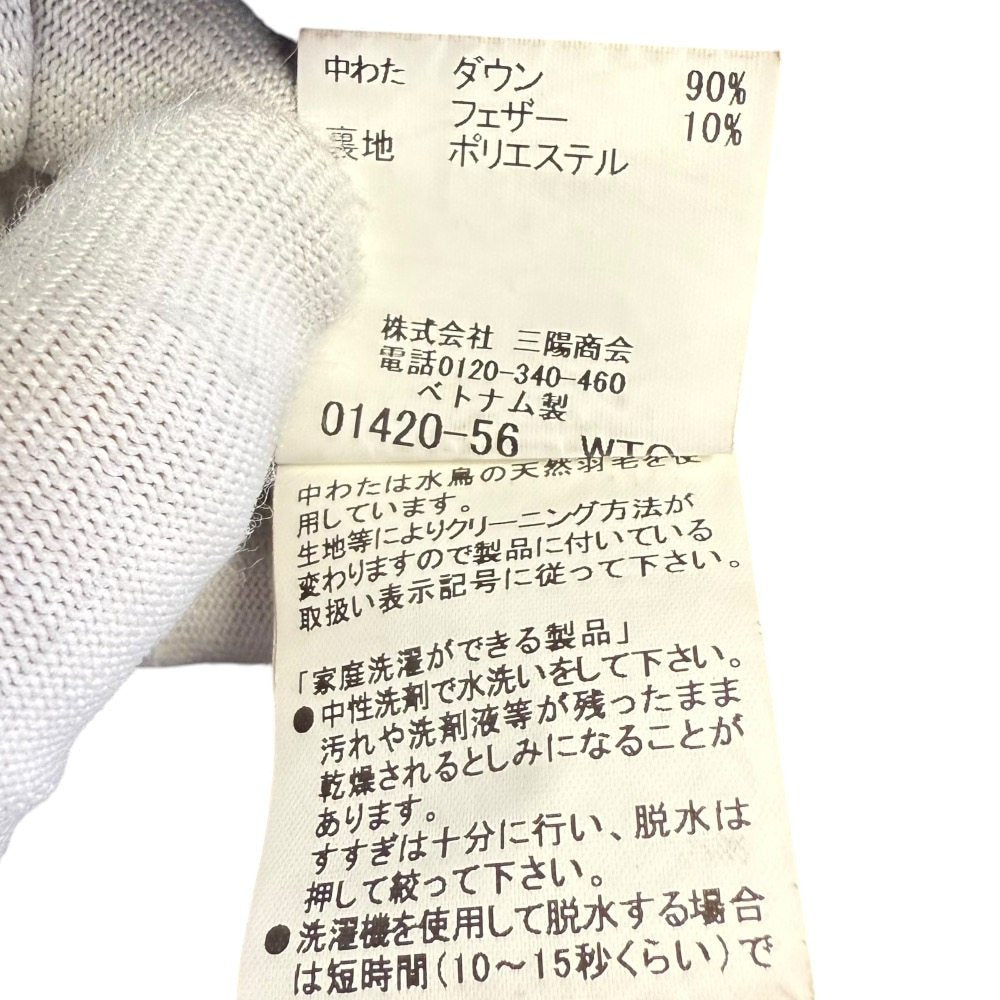 中わた ダウン 90%
フェザー 10%
裏地 ポリエステル
株式会社 三陽商会
電話0120-340-460
ベトナム製
01420-56
中わたは水鳥の天然羽毛を使
用しています。
生地等によりクリーニング方法が
変わりますので製品に付いている
取扱い表示記号に従って下さい。
「家庭洗濯ができる製品」
●中性洗剤で水洗いをして下さい。
汚れや洗剤液等が残ったまま
乾燥されるとしみになることが
あります。
すすぎは十分に行い、脱水は
押して絞って下さい。
●洗濯機を使用して脱水する場合
は短時間(10～15秒くらい)で